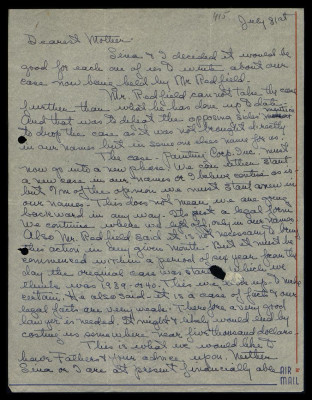 July 31st
Dearest Mother -
Lena & I decided it would be
good for each one of us to write about our
case now being held by Mr. Redfield.
Mr. Redfield can not take the case
further than what he has done up to date.
And that was to defeat the opposing sides
to drop the case as it was not brought directly
in our names but in some one elses name for us.
The case - Pauline Corp. Inc. must
now go into a new phase. We can either start
a new case in our names or I believe continue as is -
but I'm of the opinion we must start anew in
our names. This does not mean we are going
backward in any way. Its just a legal form.
We continue where we left off, only in our names.
Also Mr. Redfield said it is not necessary to bring
this action in any given month. But it must be
commenced within a period of six years from the
day the original case was started which we
think was 1939 - or 40. This we look up to make
certain. He also said - it is a case of facts & our
legal facts are very weak. Therefore a very good
lawyer is needed. It might & likely would end by
costing us somewhere near five thousand dollars.
This is what we would like to
have Fathers & your advice upon. Neither
Lena or I are at present financially able
AIR
MAIL